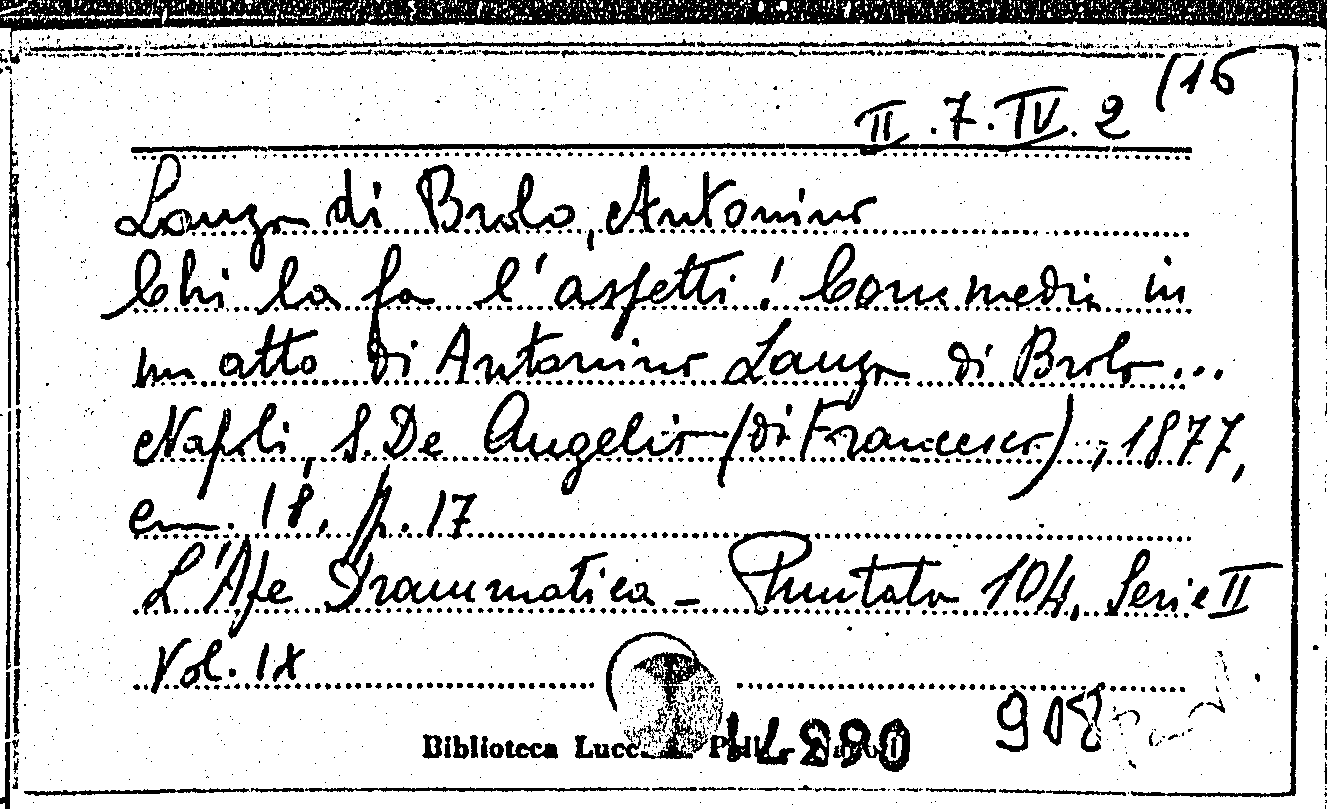 II.7.IV.2 (16
Lanza di Brolo, Antonino
Chi la fa l'aspetti! Commedia in
un atto di Antonino Lanza di Brolo...
Napoli, S. De Angelis (di Francesco), 1877,
cm. 18. p. 17
L'Ape Drammatica - Puntata 104, Serie II
Vol. IX
908
Biblioteca